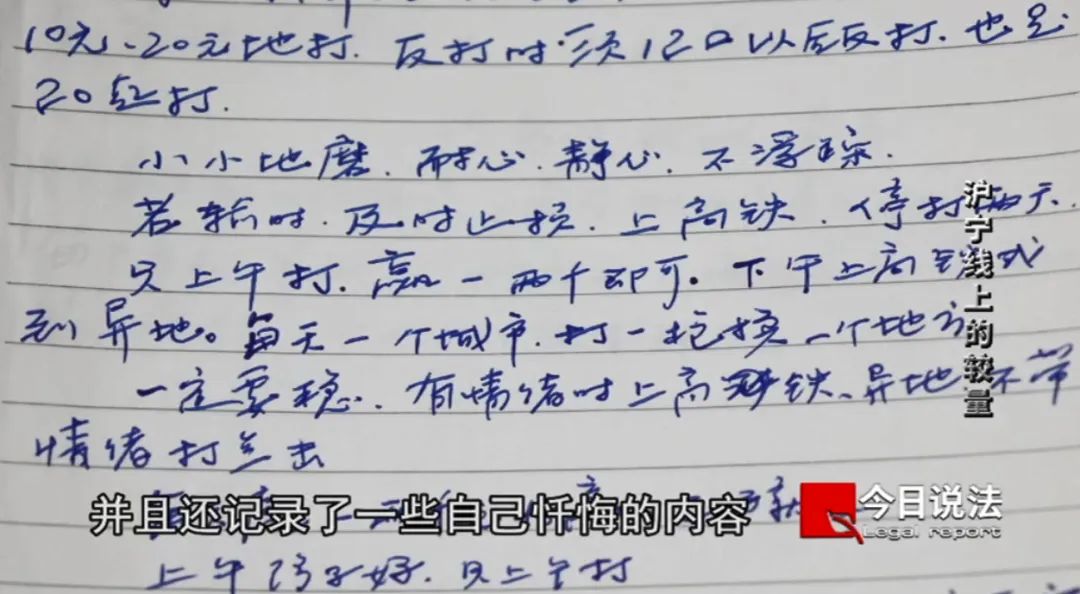 10元、20元地打. 反打时须12口以后反打. 也是
20红打.
小小地磨. 耐心. 静心. 不浮躁.
若输时. 及时止损. 上高铁. 停打两天.
只上午打. 赢一两千即可。下午上高铁或
到异地。每天一个城市. 打一枪换一个地方
一定要稳. 有情绪时上高铁、异地 不带
情绪打兰击
上午 好. 只上午打
并且还记录了一些自己忏悔的内容
沪宁线上的较量
今日说法
Legal report